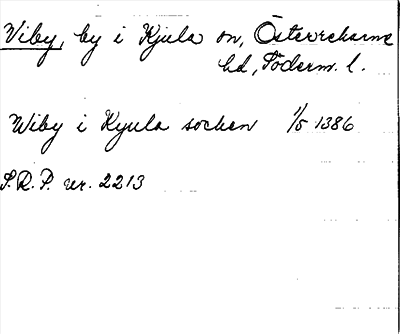 Viby, by i Kjula sn, Österrekarne
hd, Söderm. l.
Wiby i Kyula sochen 1/5 1386
S.R.P. nr. 2213